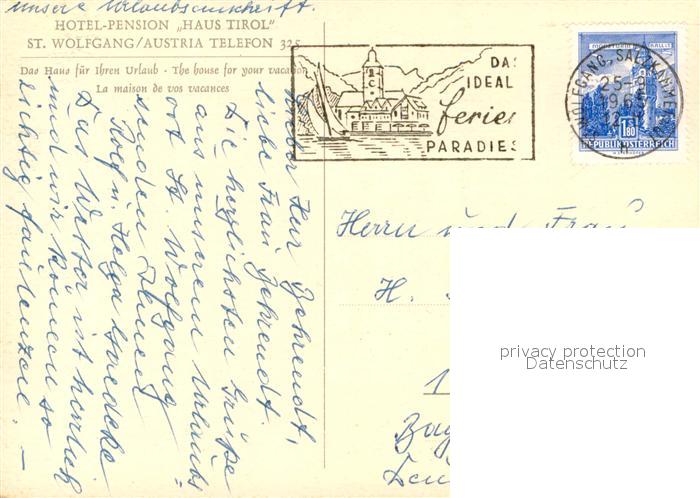 unsere Urlaubsanschrift.
HOTEL-PENSION „HAUS TIROL"
ST. WOLFGANG/AUSTRIA TELEFON 325
Das Haus für Ihren Urlaub · The house for your vacation
La maison de vos vacances
Lieber Herr Behrendt,
liebe Frau Behrendt.
Die herzlichsten Grüße
aus unserem Urlaubs
ort St. Wolfgang
senden Ihnen
Rolf u. Helga
Das Wetter ist herrlich
und wir können so
richtig faulenzen. –
DAS
IDEALE
ferien
PARADIES
ST. WOLFGANG, SALZKAMMERGUT
25-
1965
12
1.80
REPUBLIK ÖSTERREICH
Herrn und Frau
H.
1
privacy protection
Datenschutz